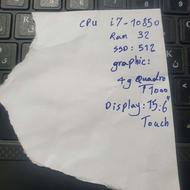 CPU i7-10850
Ram 32
SSD: 512
graphic:
4g Quadro
T1000
Display: 15.6"
Touch